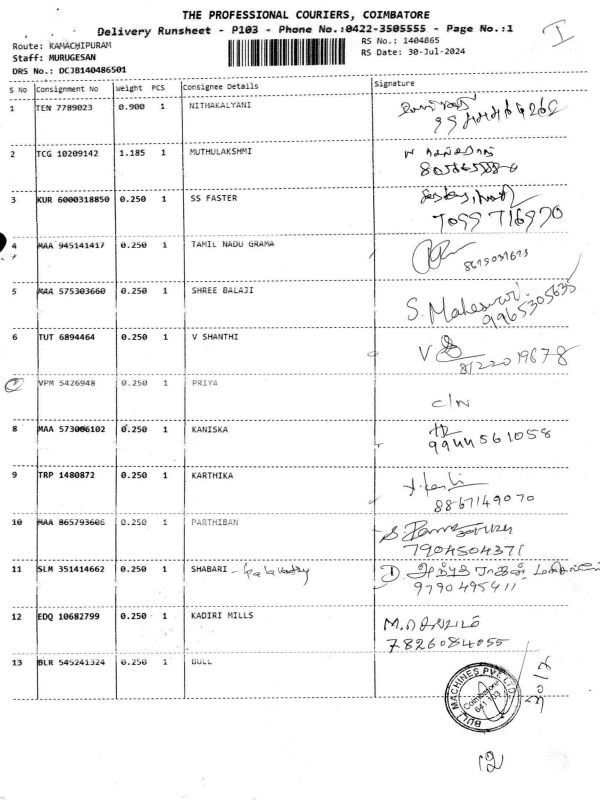 THE PROFESSIONAL COURIERS, COIMBATORE
Delivery Runsheet - P103 - Phone No.:0422-3505555 - Page No.:1
I
Route: KAMACHIPURAM
RS No.: 1404865
Staff: MURUGESAN
RS Date: 30-Jul-2024
DRS No.: DCJB140486501
S No Consignment No Weight PCS Consignee Details Signature
1 TEN 7789023 0.900 1 NITHAKALYANI
2 TCG 10209142 1.185 1 MUTHULAKSHMI
3 KUR 6000318850 0.250 1 SS FASTER
7099 716970
4 MAA 945141417 0.250 1 TAMIL NADU GRAMA
5 MAA 575303660 0.250 1 SHREE BALAJI
S. Maheswari
9965305635
6 TUT 6894464 0.250 1 V SHANTHI
V
8122019678
7 VPM 5426948 0.250 1 PRIYA
C/N
8 MAA 573006102 0.250 1 KANISKA
9944561058
9 TRP 1480872 0.250 1 KARTHIKA
8867149070
10 MAA 865793606 0.250 1 PARTHIBAN
7904504371
11 SLM 351414662 0.250 1 SHABARI
9790495411
12 EDQ 10682799 0.250 1 KADIRI MILLS
7826084055
13 BLR 545241324 0.250 1 BULL
BULL MACHINES PVT LTD
Coimbatore
12